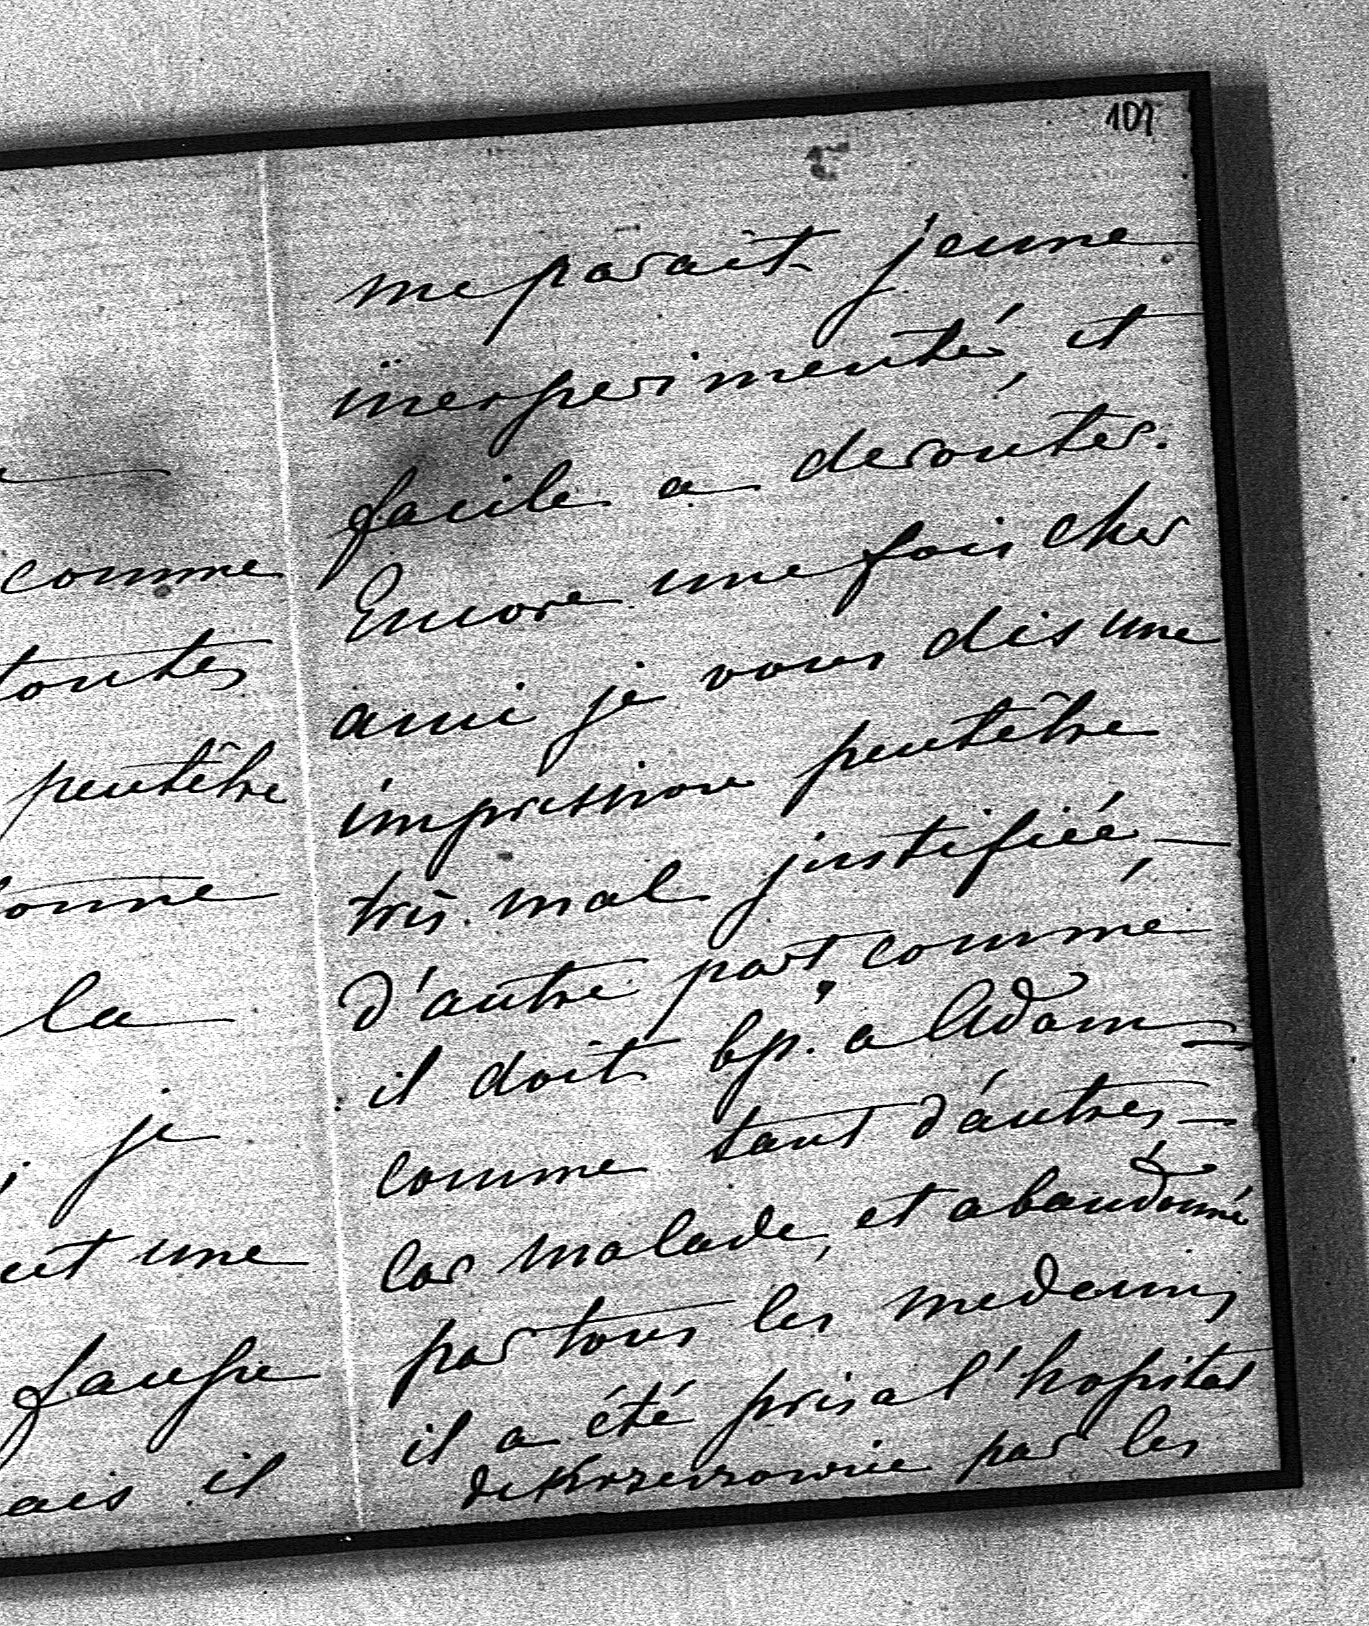 comme
toutes
peutêtre
la
je
une
fausse
ais il
107
me parait jeune
inexperimenté, et
facile a derouter.
Encore une fois cher
ami je vous dis une
impression peutêtre
très mal justifiée,
d'autre part comme
il doit bp. a Adam
comme tant d'autres
Car malade, et abandonné
par tous les medecins
il a été pris a l'hopital
de Krzeszowice par les